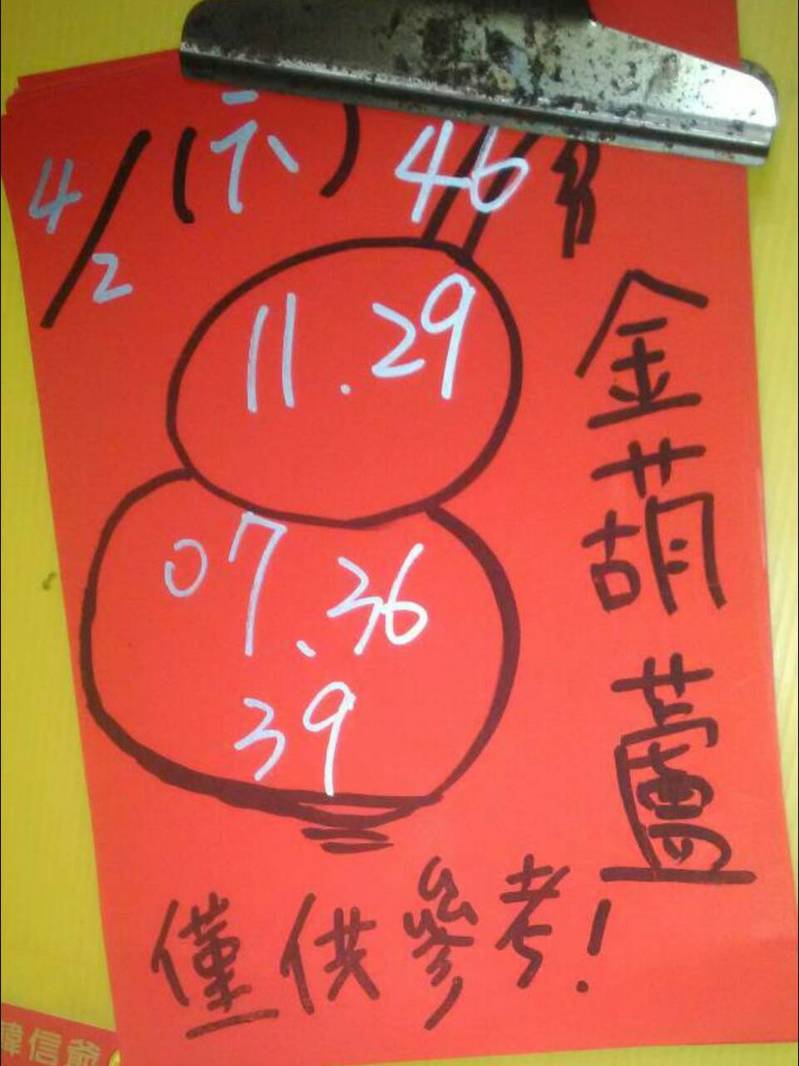 4/2 (六) 46
11.29
07、36
39
金葫蘆
僅供參考!
信爺